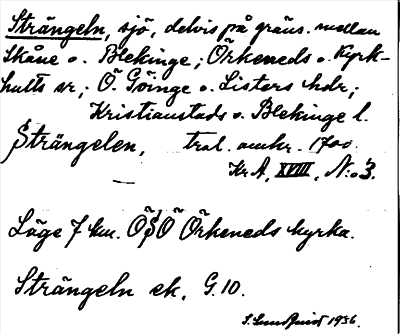 Strängeln, sjö, delvis på gräns. mellan
Skåne o. Blekinge; Örkeneds o. Kyrk-
hults sr,; Ö. Göinge o. Listers hdr,;
Kristianstads o. Blekinge l.
Strängelen, tral. omkr. 1700.
Kr A, XVIII, N:o 3.
Läge 7 km. ÖSÖ Örkeneds kyrka.
Strängeln ek. G.10.
S. Lundquist 1936.